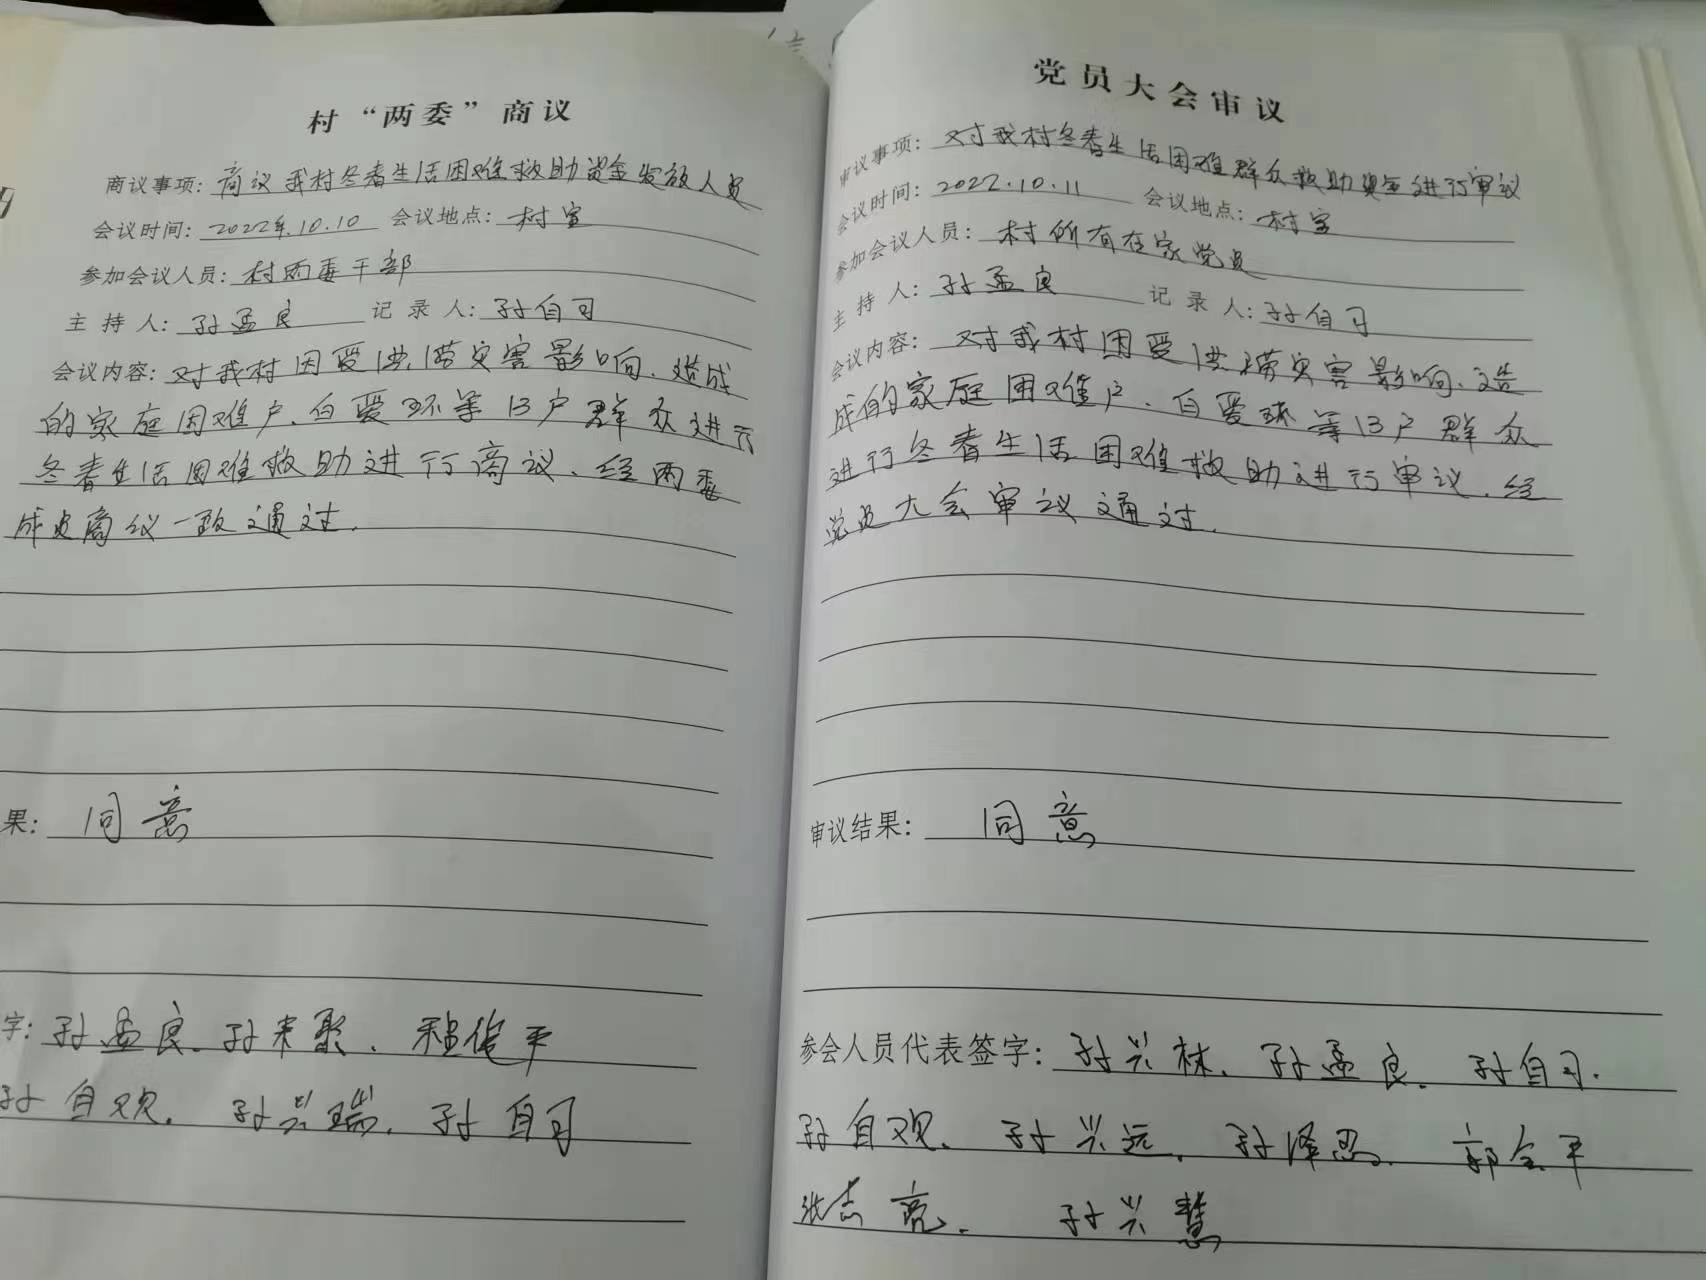 村“两委”商议
商议事项: 商议我村冬春生活困难救助资金发放人员
会议时间: 2022年.10.10 会议地点: 村室
参加会议人员: 村两委干部
主 持 人: 孙孟良 记 录 人: 孙自习
会议内容: 对我村因受洪涝灾害影响、造成
的家庭困难户、白爱环等13户群众进行
冬春生活困难救助进行商议、经两委
成员商议一致通过.
果: 同意
字: 孙孟良、孙来聚、程俊平
孙自欢、孙兴瑞、孙自习
党员大会审议
审议事项: 对我村冬春生活困难群众救助资金进行审议
会议时间: 2022.10.11 会议地点: 村室
参加会议人员: 村所有在家党员
主 持 人: 孙孟良 记 录 人: 孙自习
会议内容: 对我村因受洪涝灾害影响、造
成的家庭困难户、白爱环等13户群众
进行冬春生活困难救助进行审议、经
党员大会审议通过.
审议结果: 同意
参会人员代表签字: 孙兴林、孙孟良、孙自习.
孙自欢、孙兴远、孙泽忍、郭全平
张志亮、孙兴慧